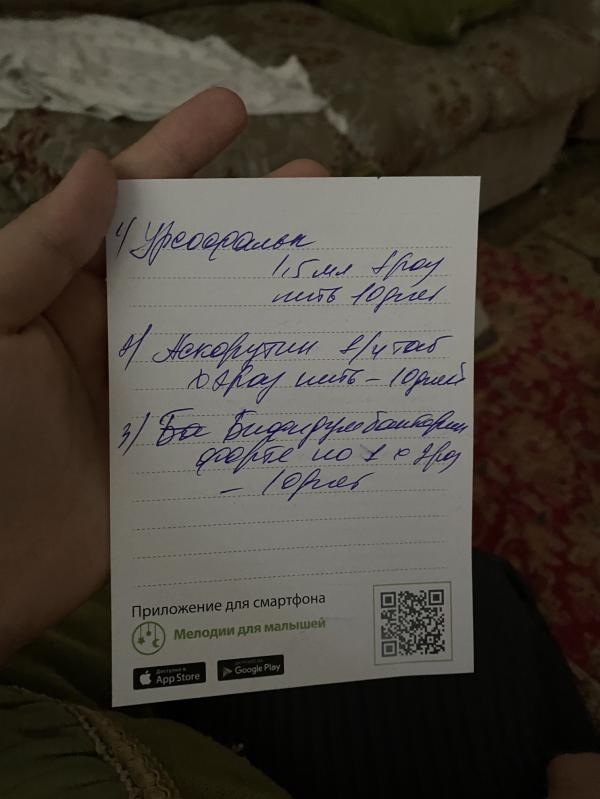 1) Урсофальк
1,5 мл 1 раз
пить 10 дней
2) Аскорутин 1/4 таб
х 2 раз пить – 10 дней
3) Бифидумбактерин
форте по 1 х 2 раз
– 10 дней
Приложение для смартфона
Мелодии для малышей
Доступно в
App Store
Google Play